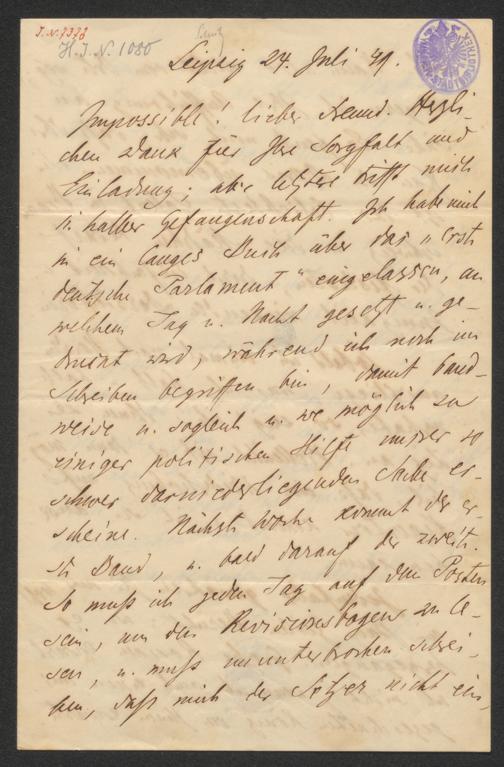 I.N. 7378
H.I.N. 1080
Leipzig 24. Juli 49.
Impossible! lieber Freund. Herzli-
chen Dank für Ihre Sorgfalt und
Einladung; aber letztere trifft mich
in halber Gefangenschaft. Ich habe mich
in ein langes Buch über das „erste
deutsche Parlament" eingelassen, an
welchem Tag u. Nacht gesetzt u. ge-
druckt wird, während ich noch im
Schreiben begriffen bin, damit band-
weise u. sogleich u. wo möglich zu
einiger politischen Hilfe unsrer so
schwer darniederliegenden Sache er-
scheine. Nächste Woche kommt der er-
ste Band, u. bald darauf der zweite.
So muß ich jeden Tag auf dem Posten
sein, um den Revisionsbogen zu le-
sen, u. muß ununterbrochen schrei-
ben, daß mich der Setzer nicht ein-